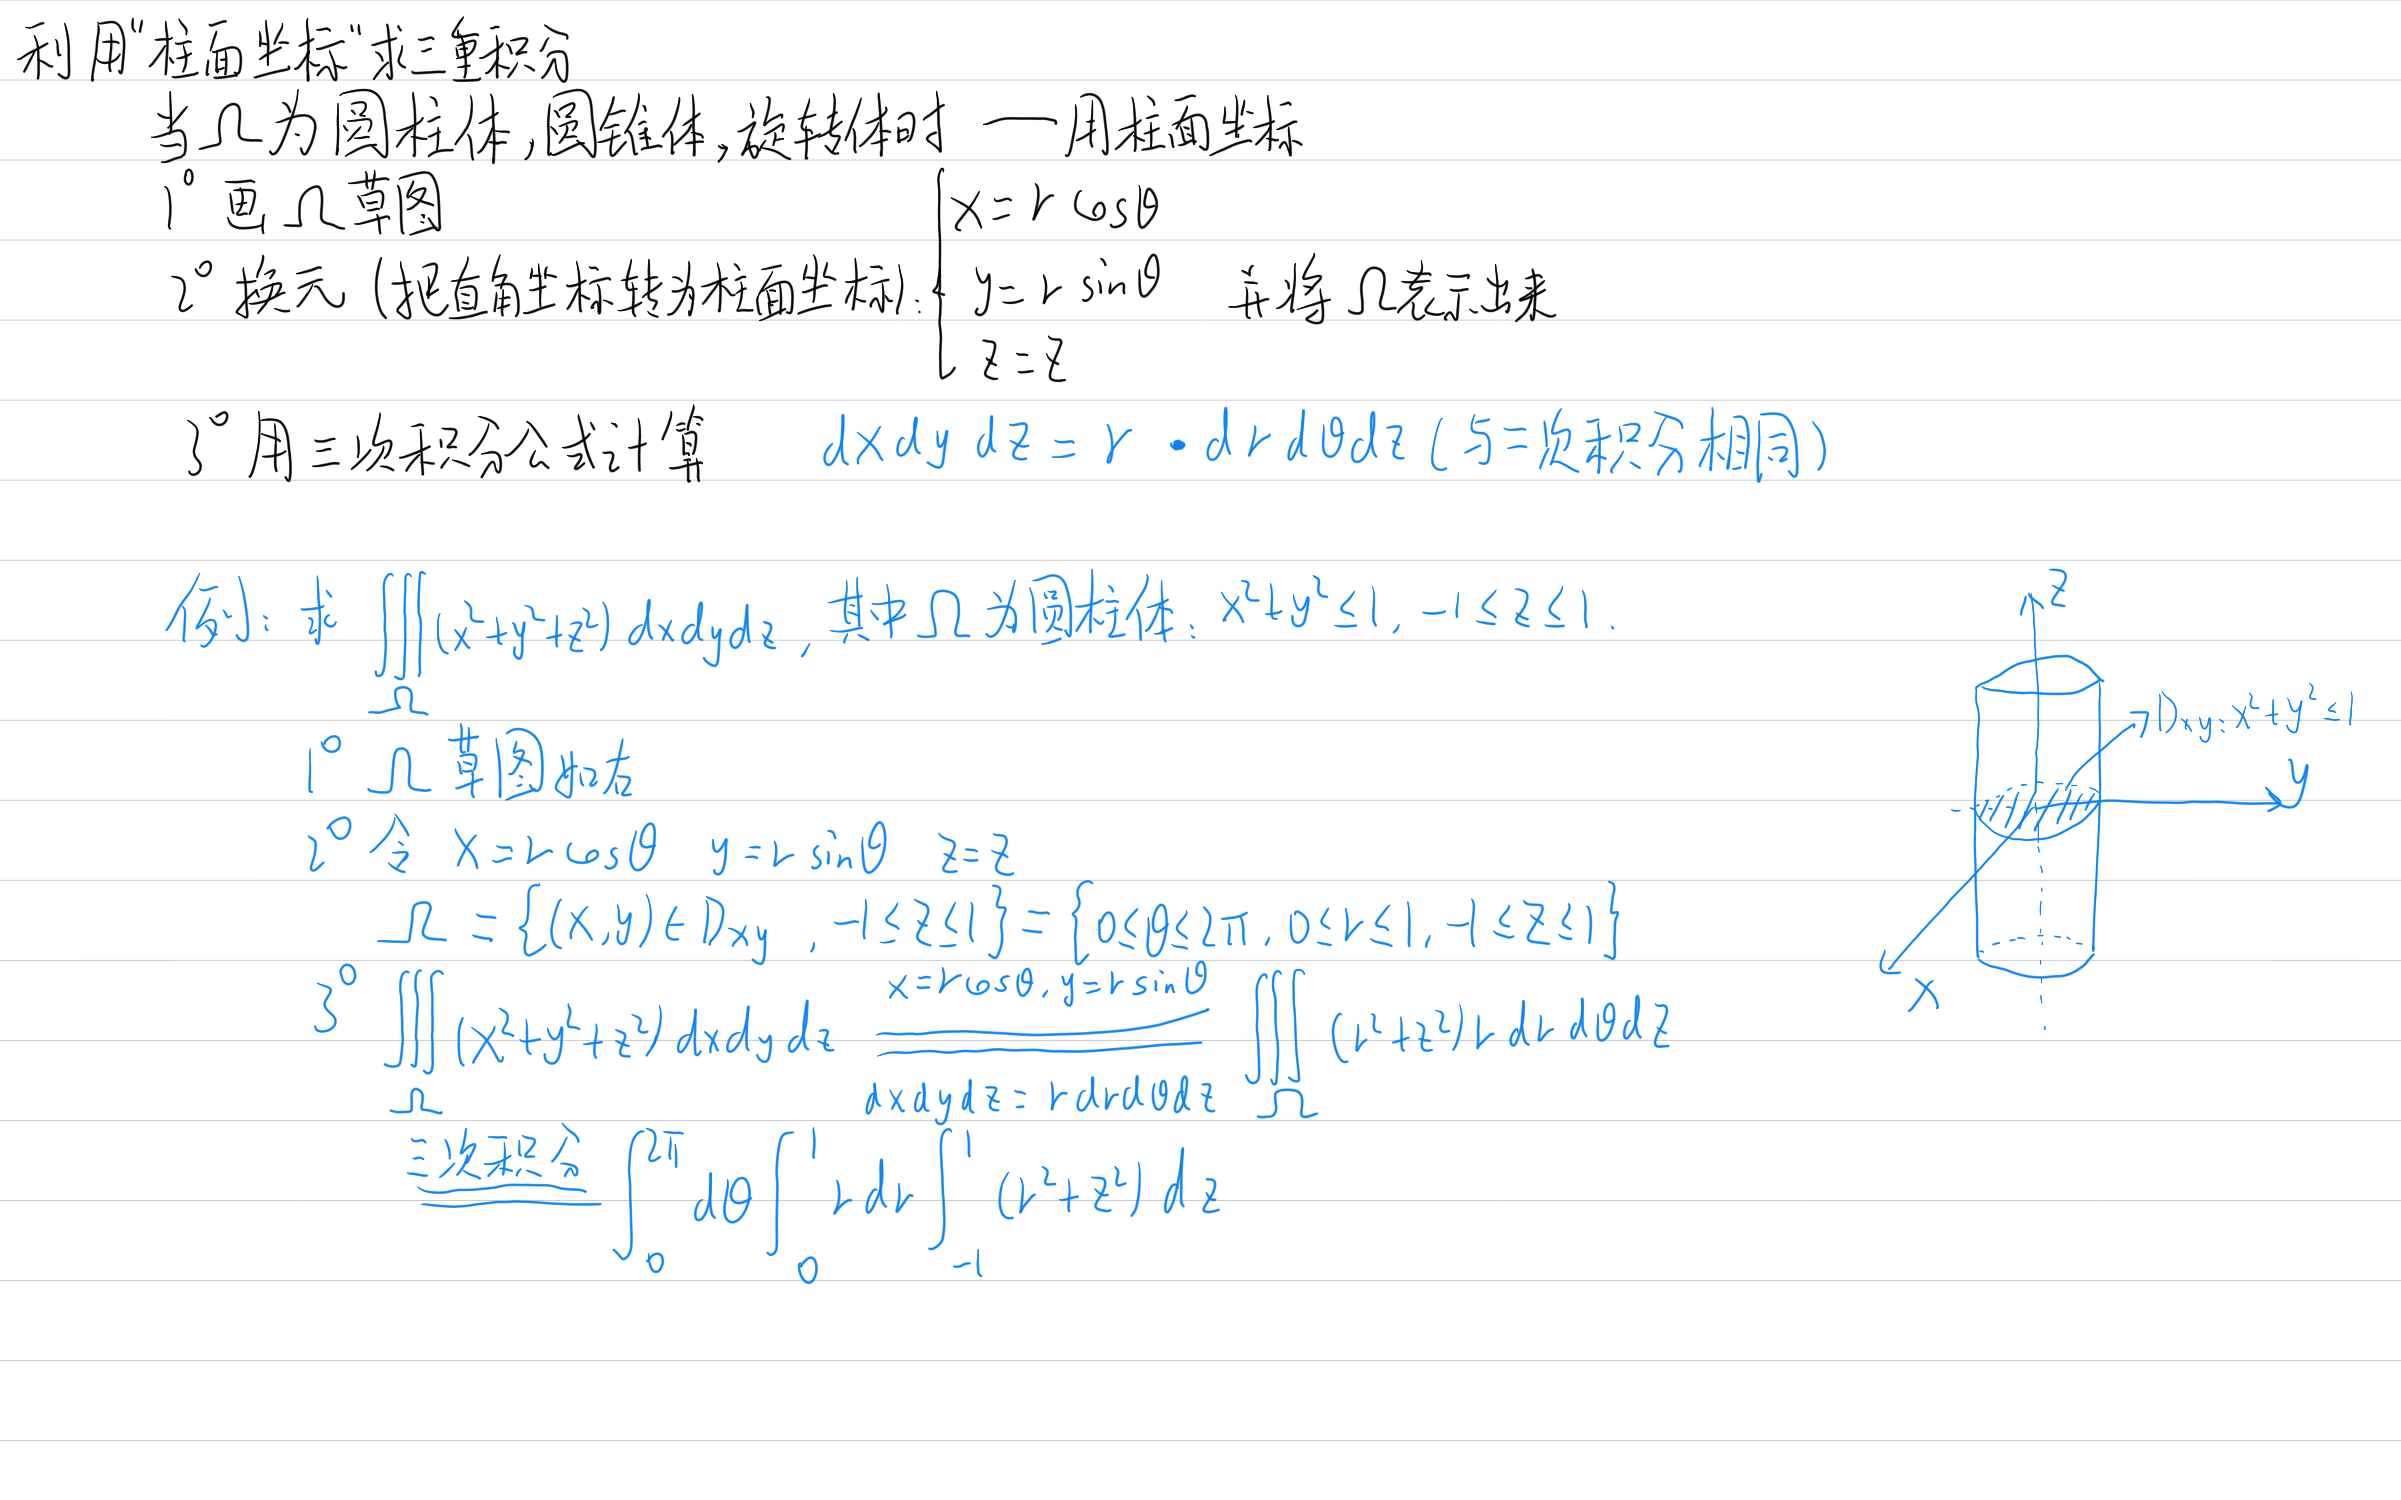 利用"柱面坐标"求三重积分
当Ω为圆柱体,圆锥体,旋转体时 —— 用柱面坐标
1° 画Ω草图
2° 换元(把直角坐标转为柱面坐标): { x=r cosθ
y=r sinθ 并将Ω表示出来
z=z
3° 用三次积分公式计算 dxdydz=r·drdθdz(与三次积分相同)
例: 求 ∭(x²+y²+z²)dxdydz, 其中Ω为圆柱体: x²+y²≤1, -1≤z≤1.
Ω
1° Ω草图如右
2° 令 x=r cosθ y=r sinθ z=z
Ω={(x,y)∈Dxy, -1≤z≤1}={0≤θ≤2π, 0≤r≤1, -1≤z≤1}
x=r cosθ, y=r sinθ
3° ∭(x²+y²+z²)dxdydz = ∭(r²+z²)rdrdθdz
Ω dxdydz=rdrdθdz Ω
三次积分 = ∫₀^2π dθ ∫₀^1 rdr ∫₋₁^1 (r²+z²)dz
z
Dxy: x²+y²≤1
y
x